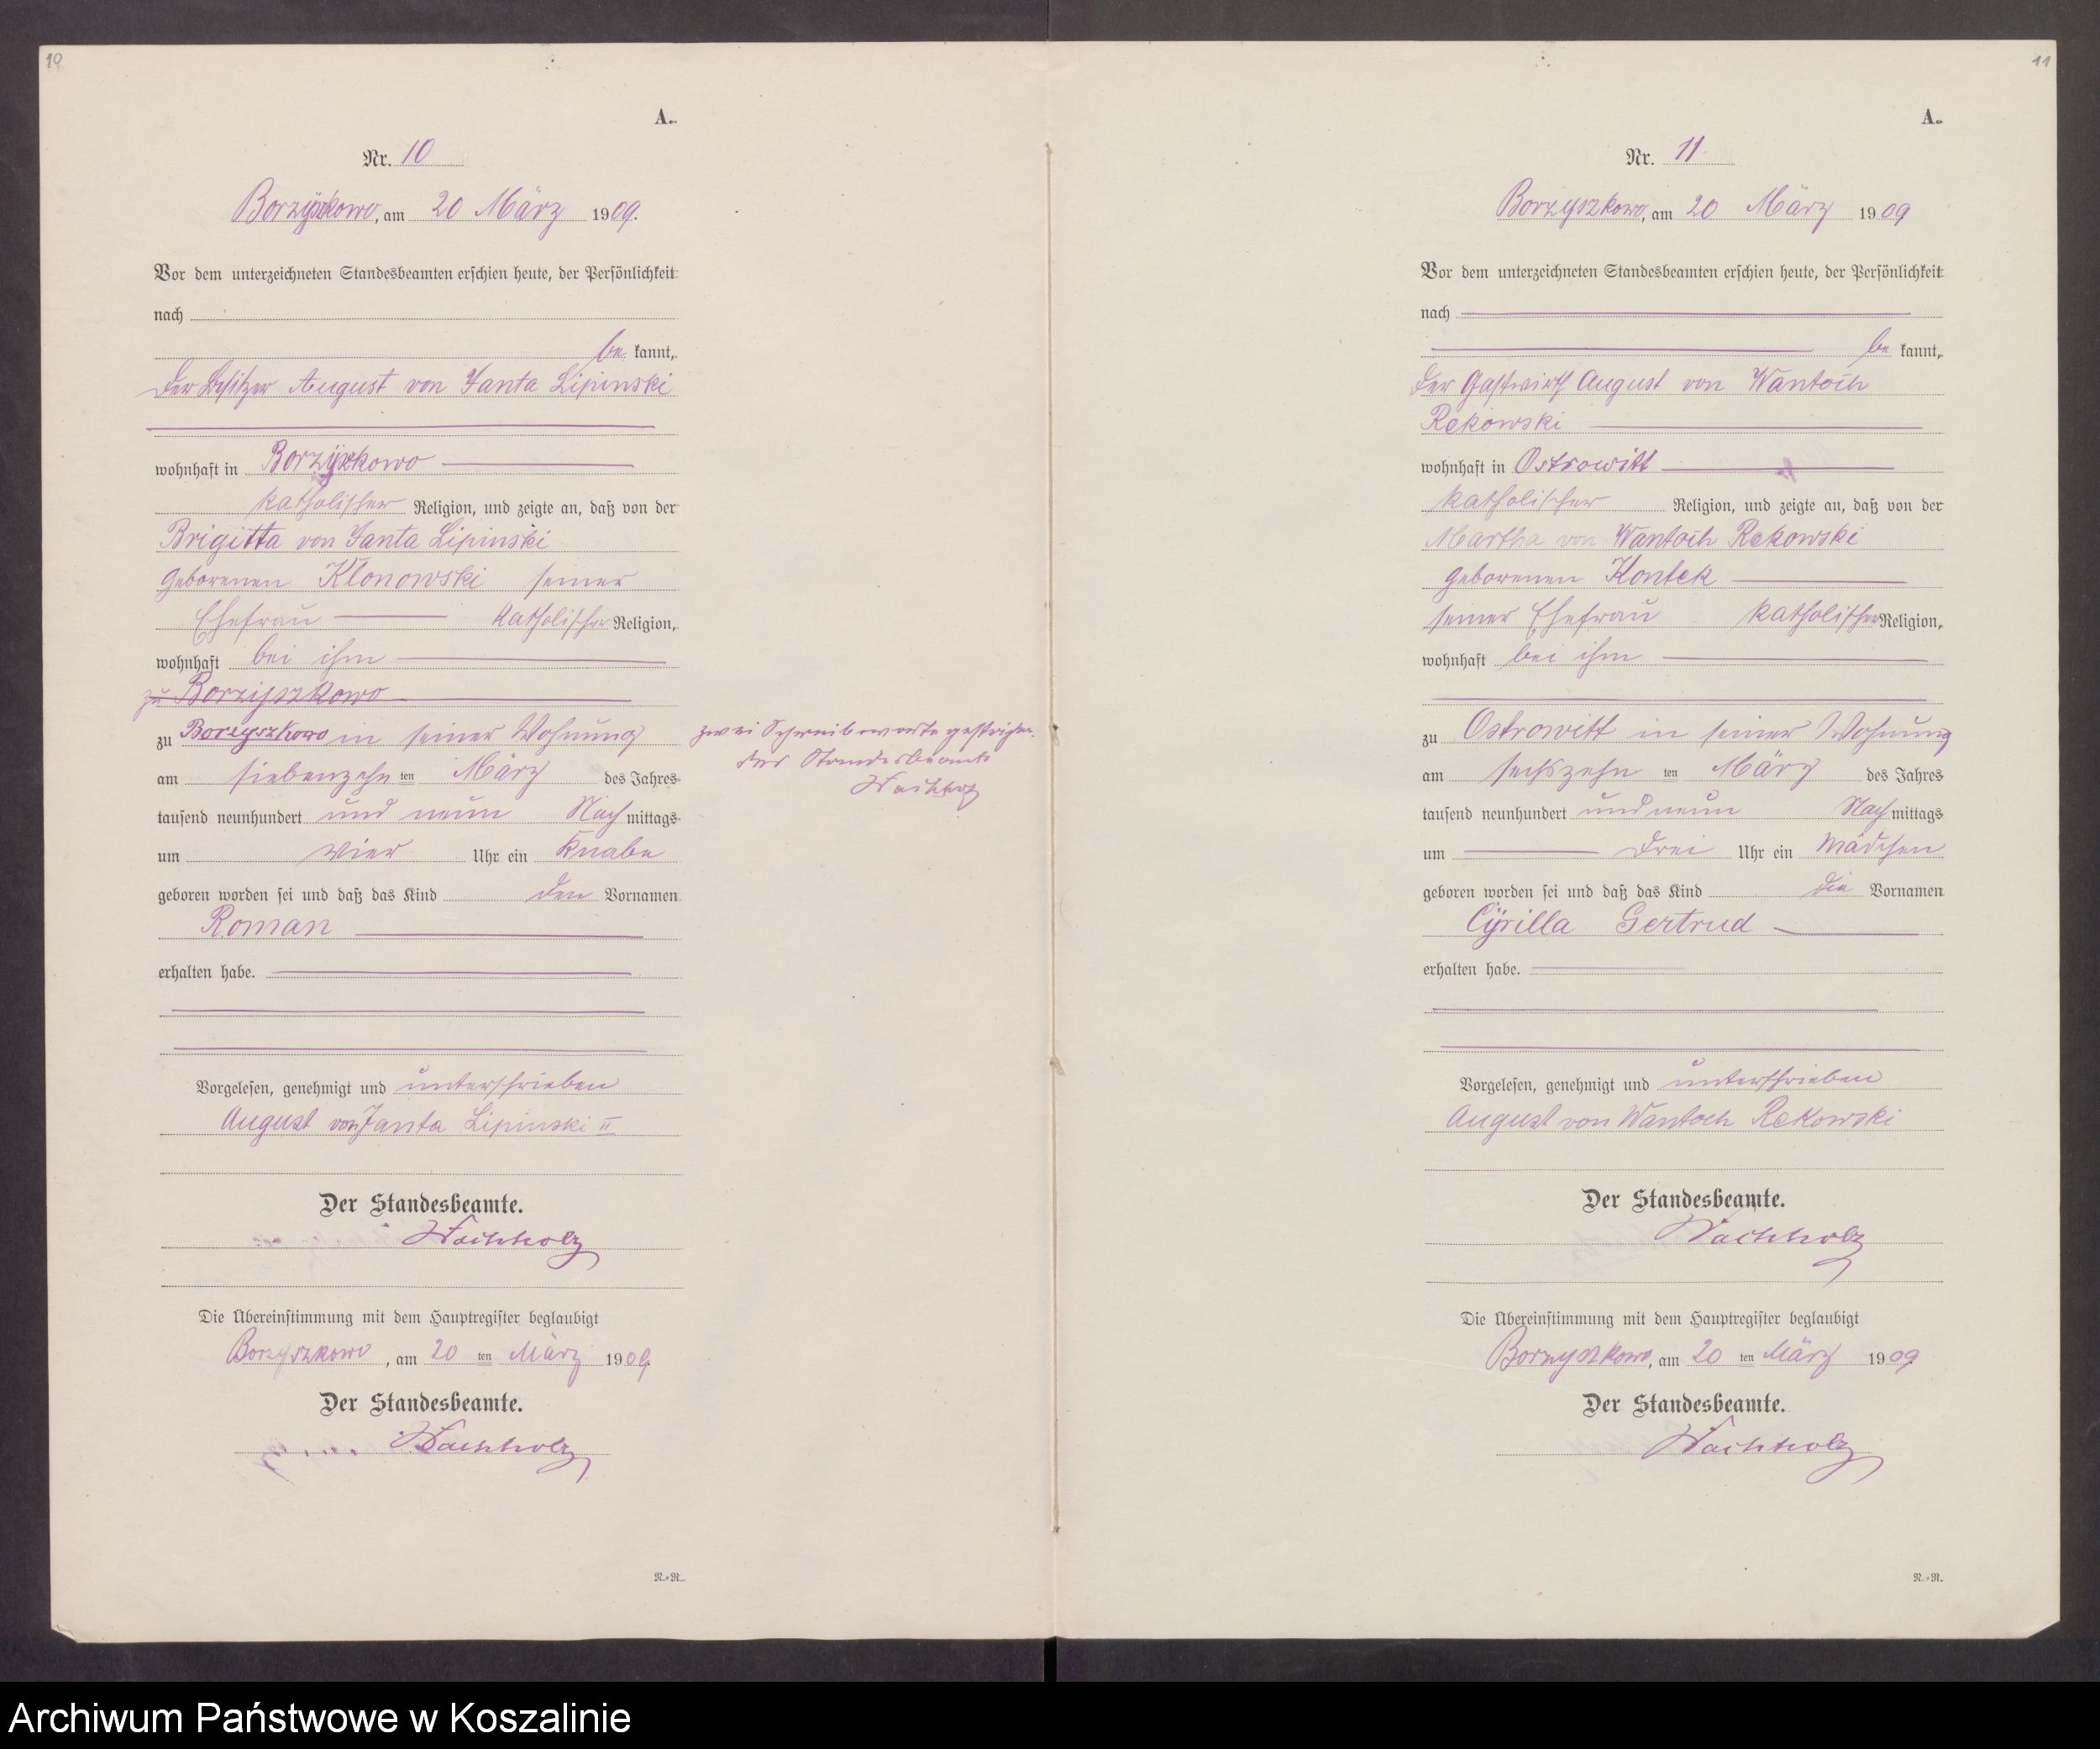 10
A.
Nr. 10
Borzyszkowo, am 20 März 1909.
Vor dem unterzeichneten Standesbeamten erschien heute, der Persönlichkeit
nach
be kannt,
der Besitzer August von Janta Lipinski
wohnhaft in Borzyszkowo
katholischer Religion, und zeigte an, daß von der
Brigitta von Janta Lipinski
geborenen Klonowski seiner
Ehefrau katholischer Religion,
wohnhaft bei ihm
zu Borzyszkowo
zu Borzyszkowo in seiner Wohnung
am siebenzehn ten März des Jahres
tausend neunhundert und neun Nach mittags
um vier Uhr ein Knabe
geboren worden sei und daß das Kind den Vornamen
Roman
erhalten habe.
Vorgelesen, genehmigt und unterschrieben
August von Janta Lipinski II
Der Standesbeamte.
Wachholz
Die Übereinstimmung mit dem Hauptregister beglaubigt
Borzyszkowo, am 20 ten März 1909.
Der Standesbeamte.
Wachholz
N.-R.
zwei Schreibworte gestrichen.
der Standesbeamte
Wachholz
11
A.
Nr. 11
Borzyszkowo, am 20 März 1909
Vor dem unterzeichneten Standesbeamten erschien heute, der Persönlichkeit
nach
be kannt,
der Gastwirth August von Wantoch
Rekowski
wohnhaft in Ostrowitt
katholischer Religion, und zeigte an, daß von der
Martha von Wantoch Rekowski
geborenen Kontek
seiner Ehefrau katholischer Religion,
wohnhaft bei ihm
zu Ostrowitt in seiner Wohnung
am sechszehn ten März des Jahres
tausend neunhundert und neun Nach mittags
um drei Uhr ein Mädchen
geboren worden sei und daß das Kind die Vornamen
Cyrilla Gertrud
erhalten habe.
Vorgelesen, genehmigt und unterschrieben
August von Wantoch Rekowski
Der Standesbeamte.
Wachholz
Die Übereinstimmung mit dem Hauptregister beglaubigt
Borzyszkowo, am 20 ten März 1909
Der Standesbeamte.
Wachholz
N.-R.
Archiwum Państwowe w Koszalinie